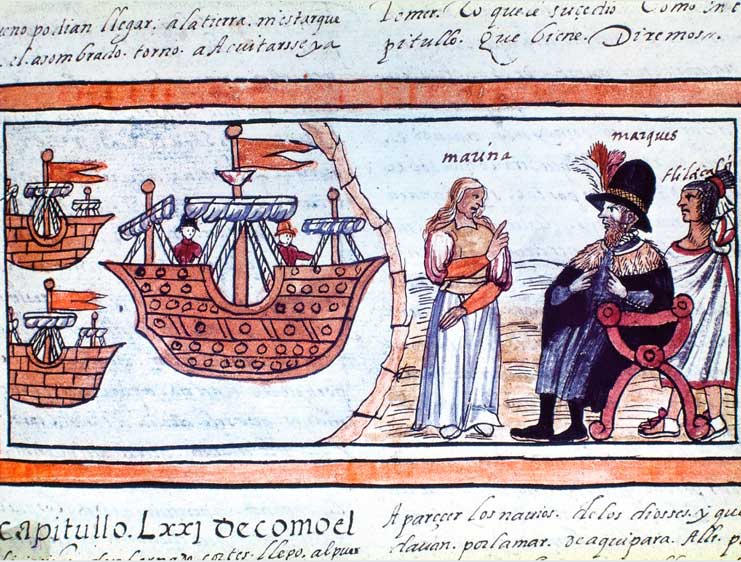 eno podian llegar, a la tierra, mostarque
el asombrado torno. a Acuitarsse ya
temer. Lo que le suçedio Como in e
pitullo. que biene. Diremos.
marina
marques
capitullo. Lxxj de como el
Cortes. llego, al puer
Apareçer los nauios. de los diosses. y que
dauan. por la mar. de aqui para. Alli. p